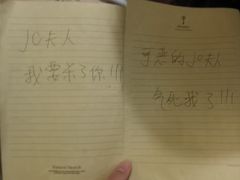 JC夫人
我要杀了你!!!
可恶的JC夫人
气死我了!!!